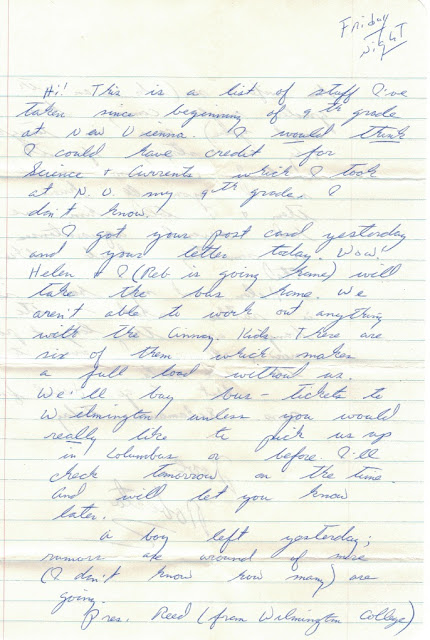 Friday
Night
Hi! This is a list of stuff I've
taken since beginning of 9th grade
at New Vienna. I would think
I could have credit for
Science & Currents which I took
at N.V. my 9th grade. I
don't know!
I got your post card yesterday
and your letter today. Wow!
Helen & I (Reb is going home) will
take the bus home. We
aren't able to work out anything
with the Kids. There are
six of them which makes
a full load without us.
We'll buy bus-tickets to
Wilmington unless you would
really like to pick us up
in Columbus or before. I'll
check tomorrow on the time.
And will let you know
later.
A boy left yesterday;
rumors are around of more
(I don't know how many) are
going.
Pres. Reed (from Wilmington College)